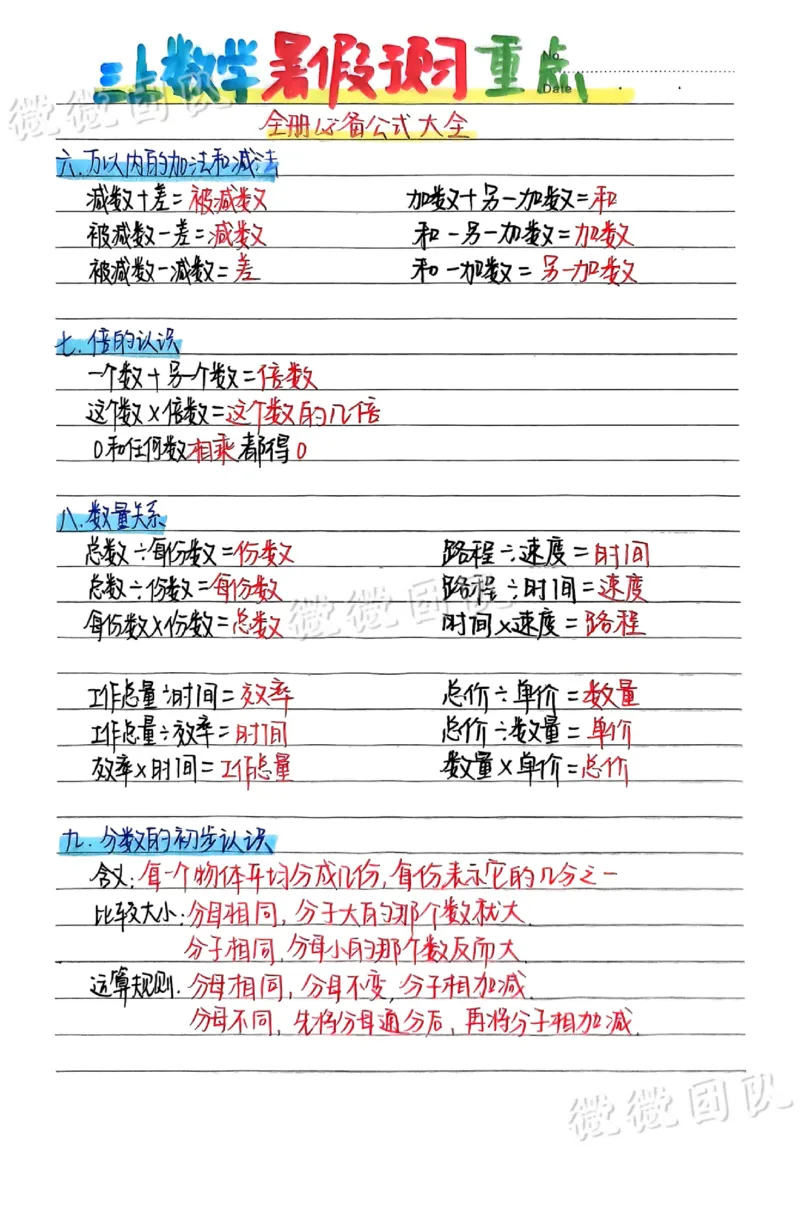 三上数学暑假预习重点
No.
Date
全册必备公式大全
六.万以内的加法和减法
减数+差=被减数 加数+另一加数=和
被减数-差=减数 和-另一加数=加数
被减数-减数=差 和-加数=另一加数
七.倍的认识
一个数+另一个数=倍数
这个数×倍数=这个数的几倍
0和任何数相乘都得0
八.数量关系
总数÷每份数=份数 路程÷速度=时间
总数÷份数=每份数 路程÷时间=速度
每份数×份数=总数 时间×速度=路程
工作总量÷时间=效率 总价÷单价=数量
工作总量÷效率=时间 总价÷数量=单价
效率×时间=工作总量 数量×单价=总价
九.分数的初步认识
含义:每个物体平均分成几份,每份表示它的几分之一
比较大小:分母相同,分子大的那个数就大.
分子相同,分母小的那个数反而大.
运算规则.分母相同,分母不变,分子相加减.
分母不同,先将分母通分后,再将分子相加减.
微微团队
微微团队
微微团队